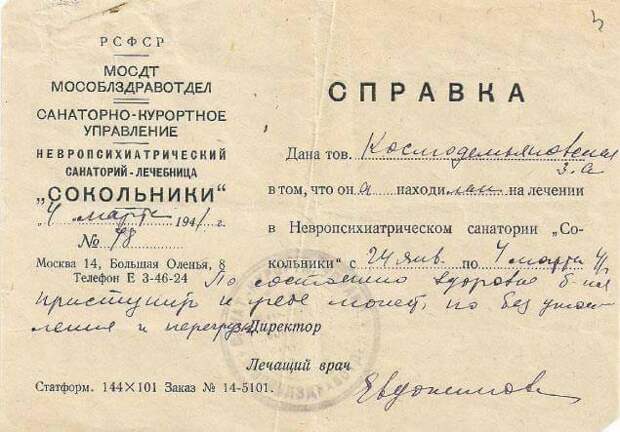 РСФСР
МОСДТ
МОСОБЛЗДРАВОТДЕЛ
САНАТОРНО-КУРОРТНОЕ
УПРАВЛЕНИЕ
НЕВРОПСИХИАТРИЧЕСКИЙ
САНАТОРИЙ-ЛЕЧЕБНИЦА
„СОКОЛЬНИКИ“
„4 марта 1941 г.
№ 98
Москва 14, Большая Оленья, 8
Телефон Е 3-46-24
СПРАВКА
Дана тов. Космодемьяновская
З.А
в том, что она находилась на лечении
в Невропсихиатрическом санатории „Со-
кольники“ с 24 янв. по 4 марта 41
По состоянию здоровья б-ная
приступить к учебе может, но без утом-
ления и перегрузки
Директор
Лечащий врач
Евдокимова
Статформ. 144×101 Заказ № 14-5101.